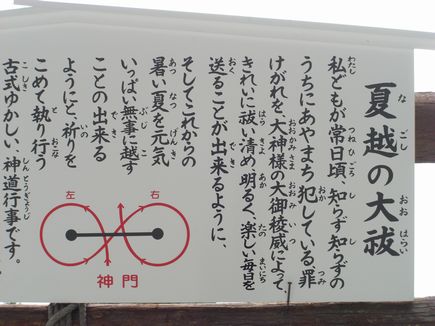 夏越の大祓
私どもが常日頃、知らず知らずの
うちにあやまち犯している罪
けがれを、大神様の大御稜威によって、
きれいに祓い清め明るく、楽しい毎日を
送ることが出来るように、
そしてこれからの
暑い夏を元気
いっぱい無事に越す
ことの出来る
ようにと、祈りを
こめて執り行う
古式ゆかしい、神道行事です。
左 右
神門